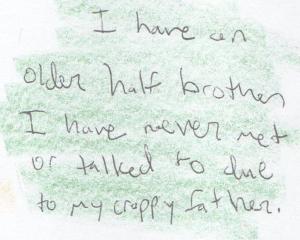 I have an
older half brother
I have never met
or talked to due
to my crappy father.